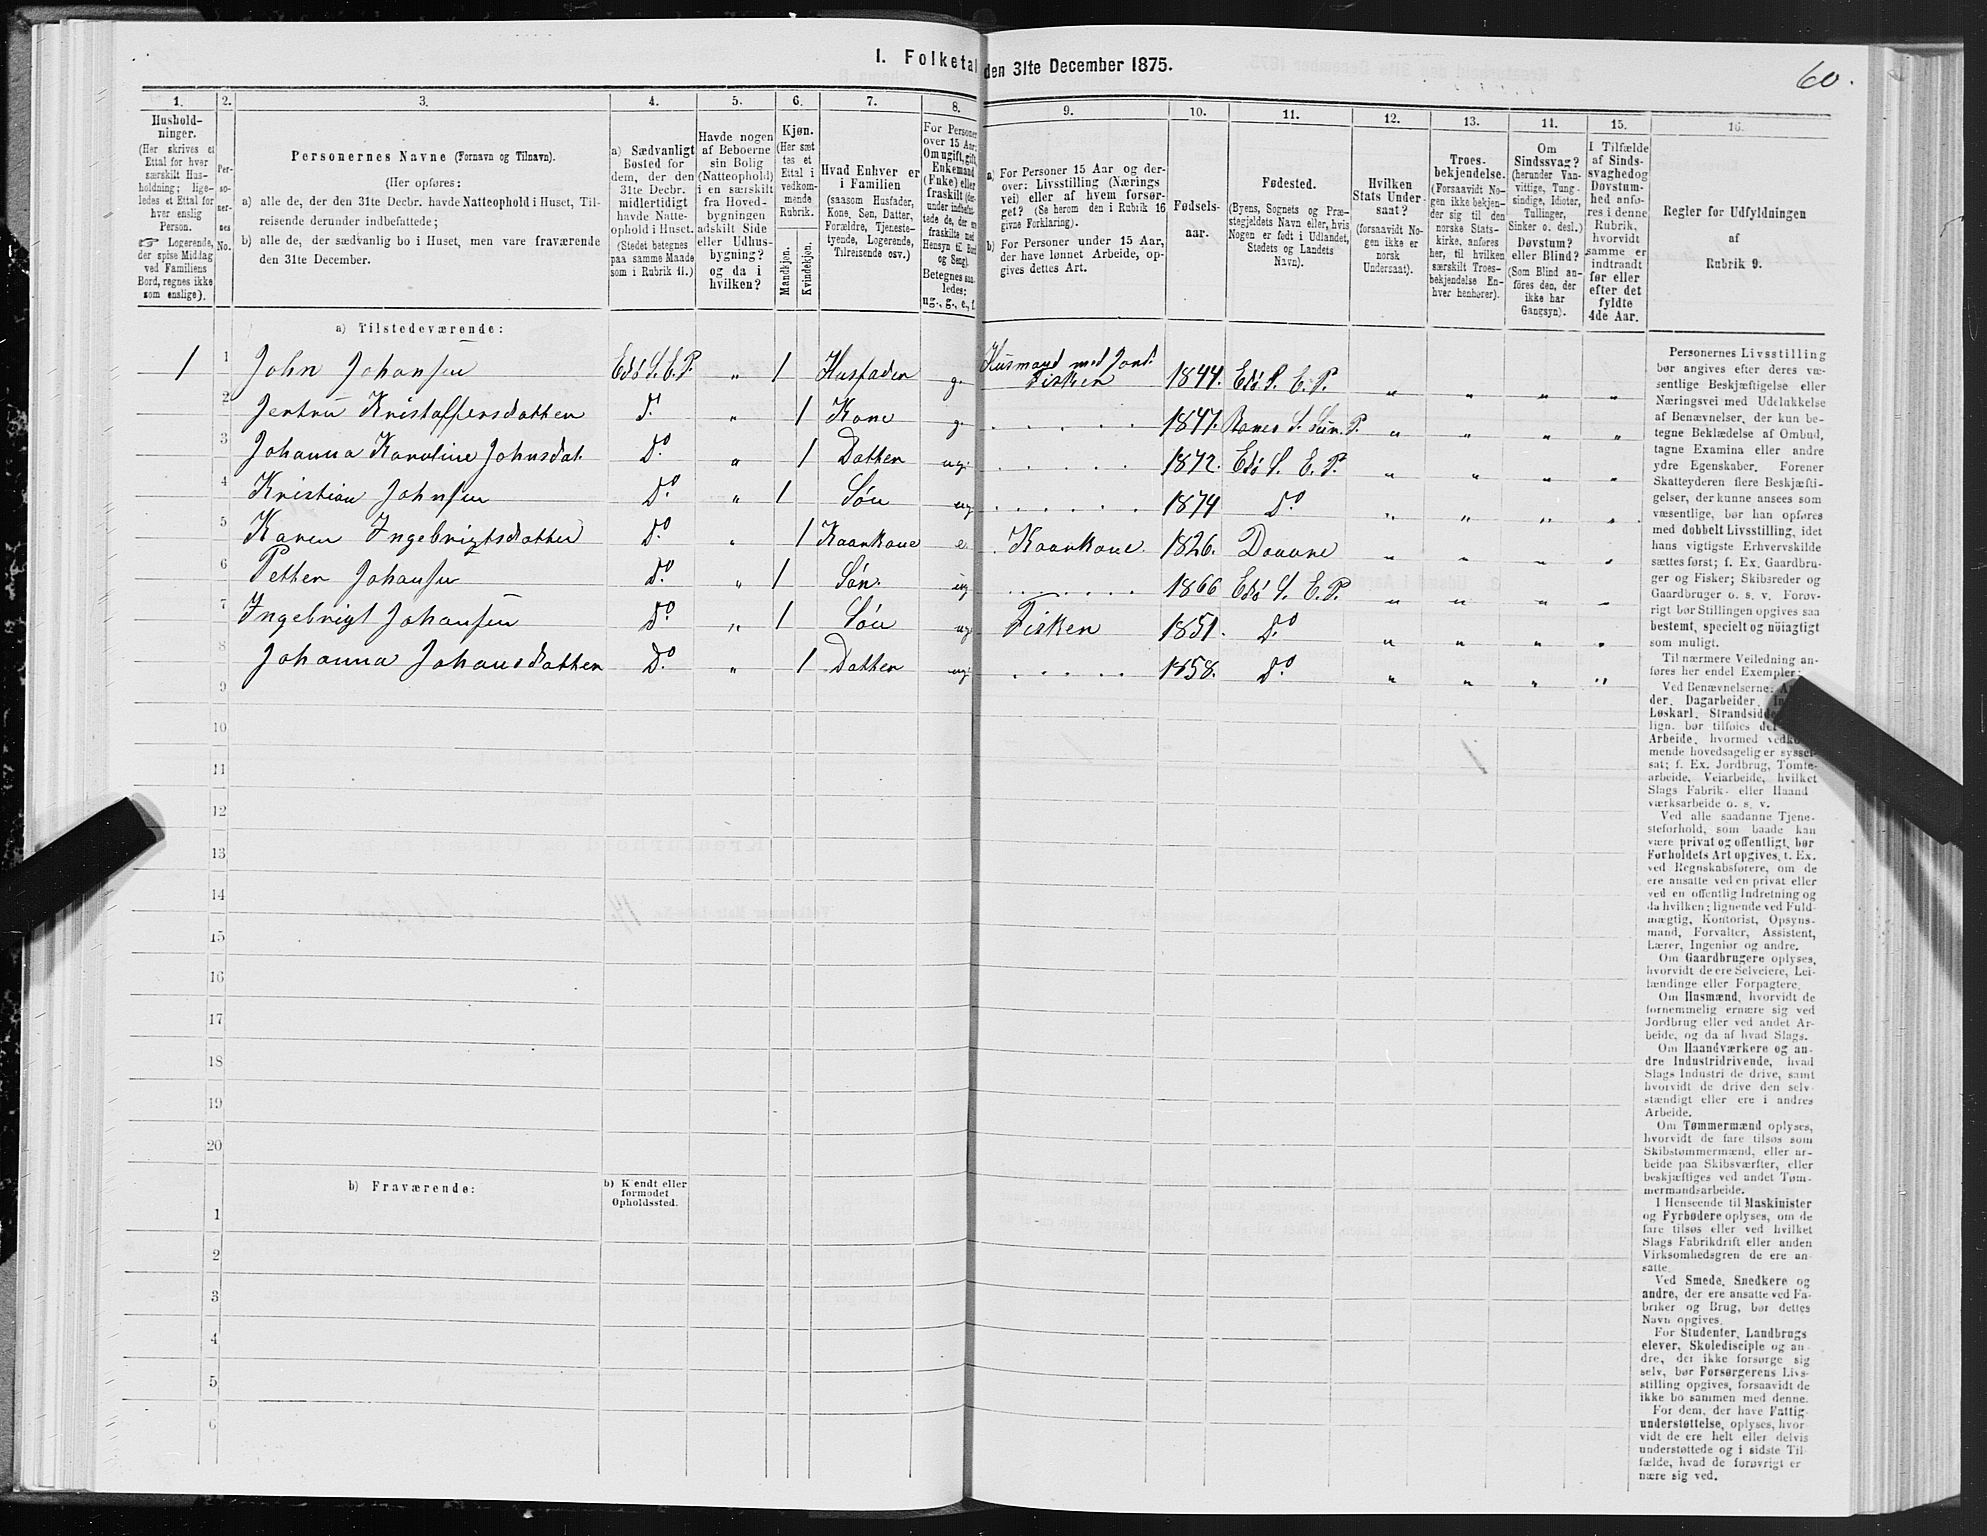 I. Folketal den 31te December 1875.
60.
1. 2. 3. 4. 5. 6. 7. 8. 9. 10. 11. 12. 13. 14. 15. 16.
Hushold-
ninger.
(Her skrives et
Ettal for hver
særskilt Hus-
holdning; lige-
ledes et Ettal for
hver enslig
Person.
☞ Logerende,
der spise Middag
ved Familiens
Bord, regnes ikke
som enslige).
Per-
so-
ner-
nes
No.
Personernes Navne (Fornavn og Tilnavn).
(Her opføres:
a) alle de, der den 31te Decbr. havde Natteophold i Huset, Til-
reisende derunder indbefattede;
b) alle de, der sædvanlig bo i Huset, men vare fraværende
den 31te December.
a) Sædvanligt
Bosted for
dem, der den
31te Decbr.
midlertidigt
havde Natte-
ophold i Huset.
(Stedet betegnes
paa samme Maade
som i Rubrik 11.)
Havde nogen
af Beboerne
sin Bolig
(Natteophold)
i en særskilt
fra Hoved-
bygningen
adskilt Side
eller Udhus-
bygning?
og da i
hvilken?
Kjøn.
(Her sæt-
tes et
Ettal i
vedkom-
mende
Rubrik.
Mandkjøn.
Kvindekjøn.
Hvad Enhver er
i Familien
(saasom Husfader,
Kone, Søn, Datter,
Forældre, Tjeneste-
tyende, Logerende,
Tilreisende osv.)
For Personer
over 15 Aar:
Om ugift, gift,
Enkemand
(Enke) eller
fraskilt (der-
under indbefat-
tede de, der ere
fraskilte med
Hensyn til Bord
og Seng).
Betegnes saa-
ledes:
ug., g., e., f.
a) For Personer 15 Aar og der-
over: Livsstilling (Nærings
vei) eller af hvem forsør-
get? (Se herom den i Rubrik 16
givne Forklaring).
b) For Personer under 15 Aar,
der have lønnet Arbeide, op-
gives dettes Art.
Fødsels-
aar.
Fødested.
(Byens, Sognets og Præ-
stegjeldets Navn eller, hvis
Nogen er født i Udlandet,
Stedets og Landets
Navn).
Hvilken
Stats Under-
saat?
(forsaavidt No-
gen ikke er
norsk
Undersaat).
Troes-
bekjendelse.
(Forsaavidt No-
gen ikke bekjen-
der sig til den
norske Stats-
kirke, anføres
her, til hvilken
særskilt Troes-
bekjendelse En-
hver henhører).
Om
Sindssvag?
(herunder Van-
vittige, Tung-
sindige, Idioter,
Tullinger,
Sinker o. desl.)
Døvstum?
eller Blind?
(Som Blind an-
føres den, der
ikke har
Gangsyn).
I Tilfælde
af Sinds-
svaghed og
Døvstum-
hed anfø-
res i denne
Rubrik,
hvorvidt
samme er
indtraadt
før eller
efter det
fyldte
4de Aar.
Regler for Udfyldningen
af
Rubrik 9.
a) Tilstedeværende:
1 1 John Johansen Edö S. E. P. „ 1 Husfader g. Husmand med Jord. Fisker 1844. Edö S. E. P. „ „ „ „
2 Jertru Kristoffersdatter D.o „ 1 Kone g. 1847. „ „ „ „
3 Johanna Karoline Johnsdat. D.o „ 1 Datter ug. 1872. Edö S. E. P. „ „ „ „
4 Kristian Johnsen D.o „ 1 Sön ug. 1874 D.o „ „ „ „
5 Karen Ingebrigtsdatter D.o „ 1 Kaarkone e. Kaarkone. 1826. „ „ „ „
6 Petter Johansen D.o „ 1 Sön. ug. 1866 Edö S. E. P. „ „ „ „
7 Ingebrigt Johansen D.o „ 1 Sön ug. Fisker 1851. D.o „ „ „ „
8 Johanna Johansdatter D.o „ 1 Datter ug. 1858. D.o „ „ „ „
9
10
11
12
13
14
15
16
17
18
19
20
b) Fraværende:
b) Kjendt eller
formodet
Opholdssted.
1
2
3
4
5
6
Personernes Livsstilling
bør angives efter deres væ-
sentlige Beskjæftigelse eller
Næringsvei med Udelukkelse
af Benævnelser, der kun be-
tegne Beklædelse af Ombud,
tagne Examina eller andre
ydre Egenskaber. Forener
Skatteyderen flere Beskjæfti-
gelser, der kunne ansees som
væsentlige, bør han opføres
med dobbelt Livsstilling, idet
hans vigtigste Erhvervskilde
sættes først; f. Ex. Gaardbru-
ger og Fisker; Skibsreder og
Gaardbruger o. s. v. Forøv-
rigt bør Stillingen opgives saa
bestemt, specielt og nöiagtigt
som muligt.
Til nærmere Veiledning an-
føres her endel Exempler:
Ved Benævnelserne:
der, Dagarbeider,
Løskarl, Strandsidder
lign. bør tilføies det
Arbeide, hvormed vedkom-
mende hovedsagelig er syssel-
sat; f. Ex. Jordbrug, Tomte-
arbeide, Veiarbeide, hvilket
Slags Fabrik- eller Haand-
værksarbeide o. s. v.
Ved alle saadanne Tjene-
steforhold, som baade kan
være privat og offentligt, bør
Forholdets Art opgives, t. Ex.
ved Regnskabsførere, om de
ere ansatte ved en privat eller
ved en offentlig Indretning og
da hvilken; lignende ved Fuld-
mægtig, Kontorist, Opsyns-
mand, Forvalter, Assistent,
Lærer, Ingeniør og andre.
Om Gaardbrugere oplyses,
hvorvidt de ere Selveiere, Lei-
lændinge eller Forpagtere.
Om Husmænd, hvorvidt de
fornemmelig ernære sig ved
Jordbrug eller ved andet Ar-
beide, og da af hvad Slags.
Om Haandværkere og an-
dre Industridrivende, hvad
Slags Industri de drive, samt
hvorvidt de drive den selv-
stændigt eller ere i andres
Arbeide.
Om Tømmermænd oplyses,
hvorvidt de fare tilsøs som
Skibstømmermænd, eller ar-
beide paa Skibsværfter, eller
beskjæftiges ved andet Tøm-
mermandsarbeide.
I Henseende til Maskinister
og Fyrbødere oplyses, om de
fare tilsøs eller ved hvilket
Slags Fabrikdrift eller anden
Virksomhedsgren de ere an-
satte.
Ved Smede, Snedkere og
andre, der ere ansatte ved Fa-
briker og Brug, bør dettes
Navn opgives.
For Studenter, Landbrugs-
elever, Skoledisciple og an-
dre, der ikke forsørge sig
selv, bør Forsørgerens Livs-
stilling opgives, forsaavidt de
ikke bo sammen med denne.
For dem, der have Fattig-
understøttelse, oplyses, hvor-
vidt de ere helt eller delvis
understøttede og i sidste Til-
fælde, hvad de forøvrigt er-
nære sig ved.